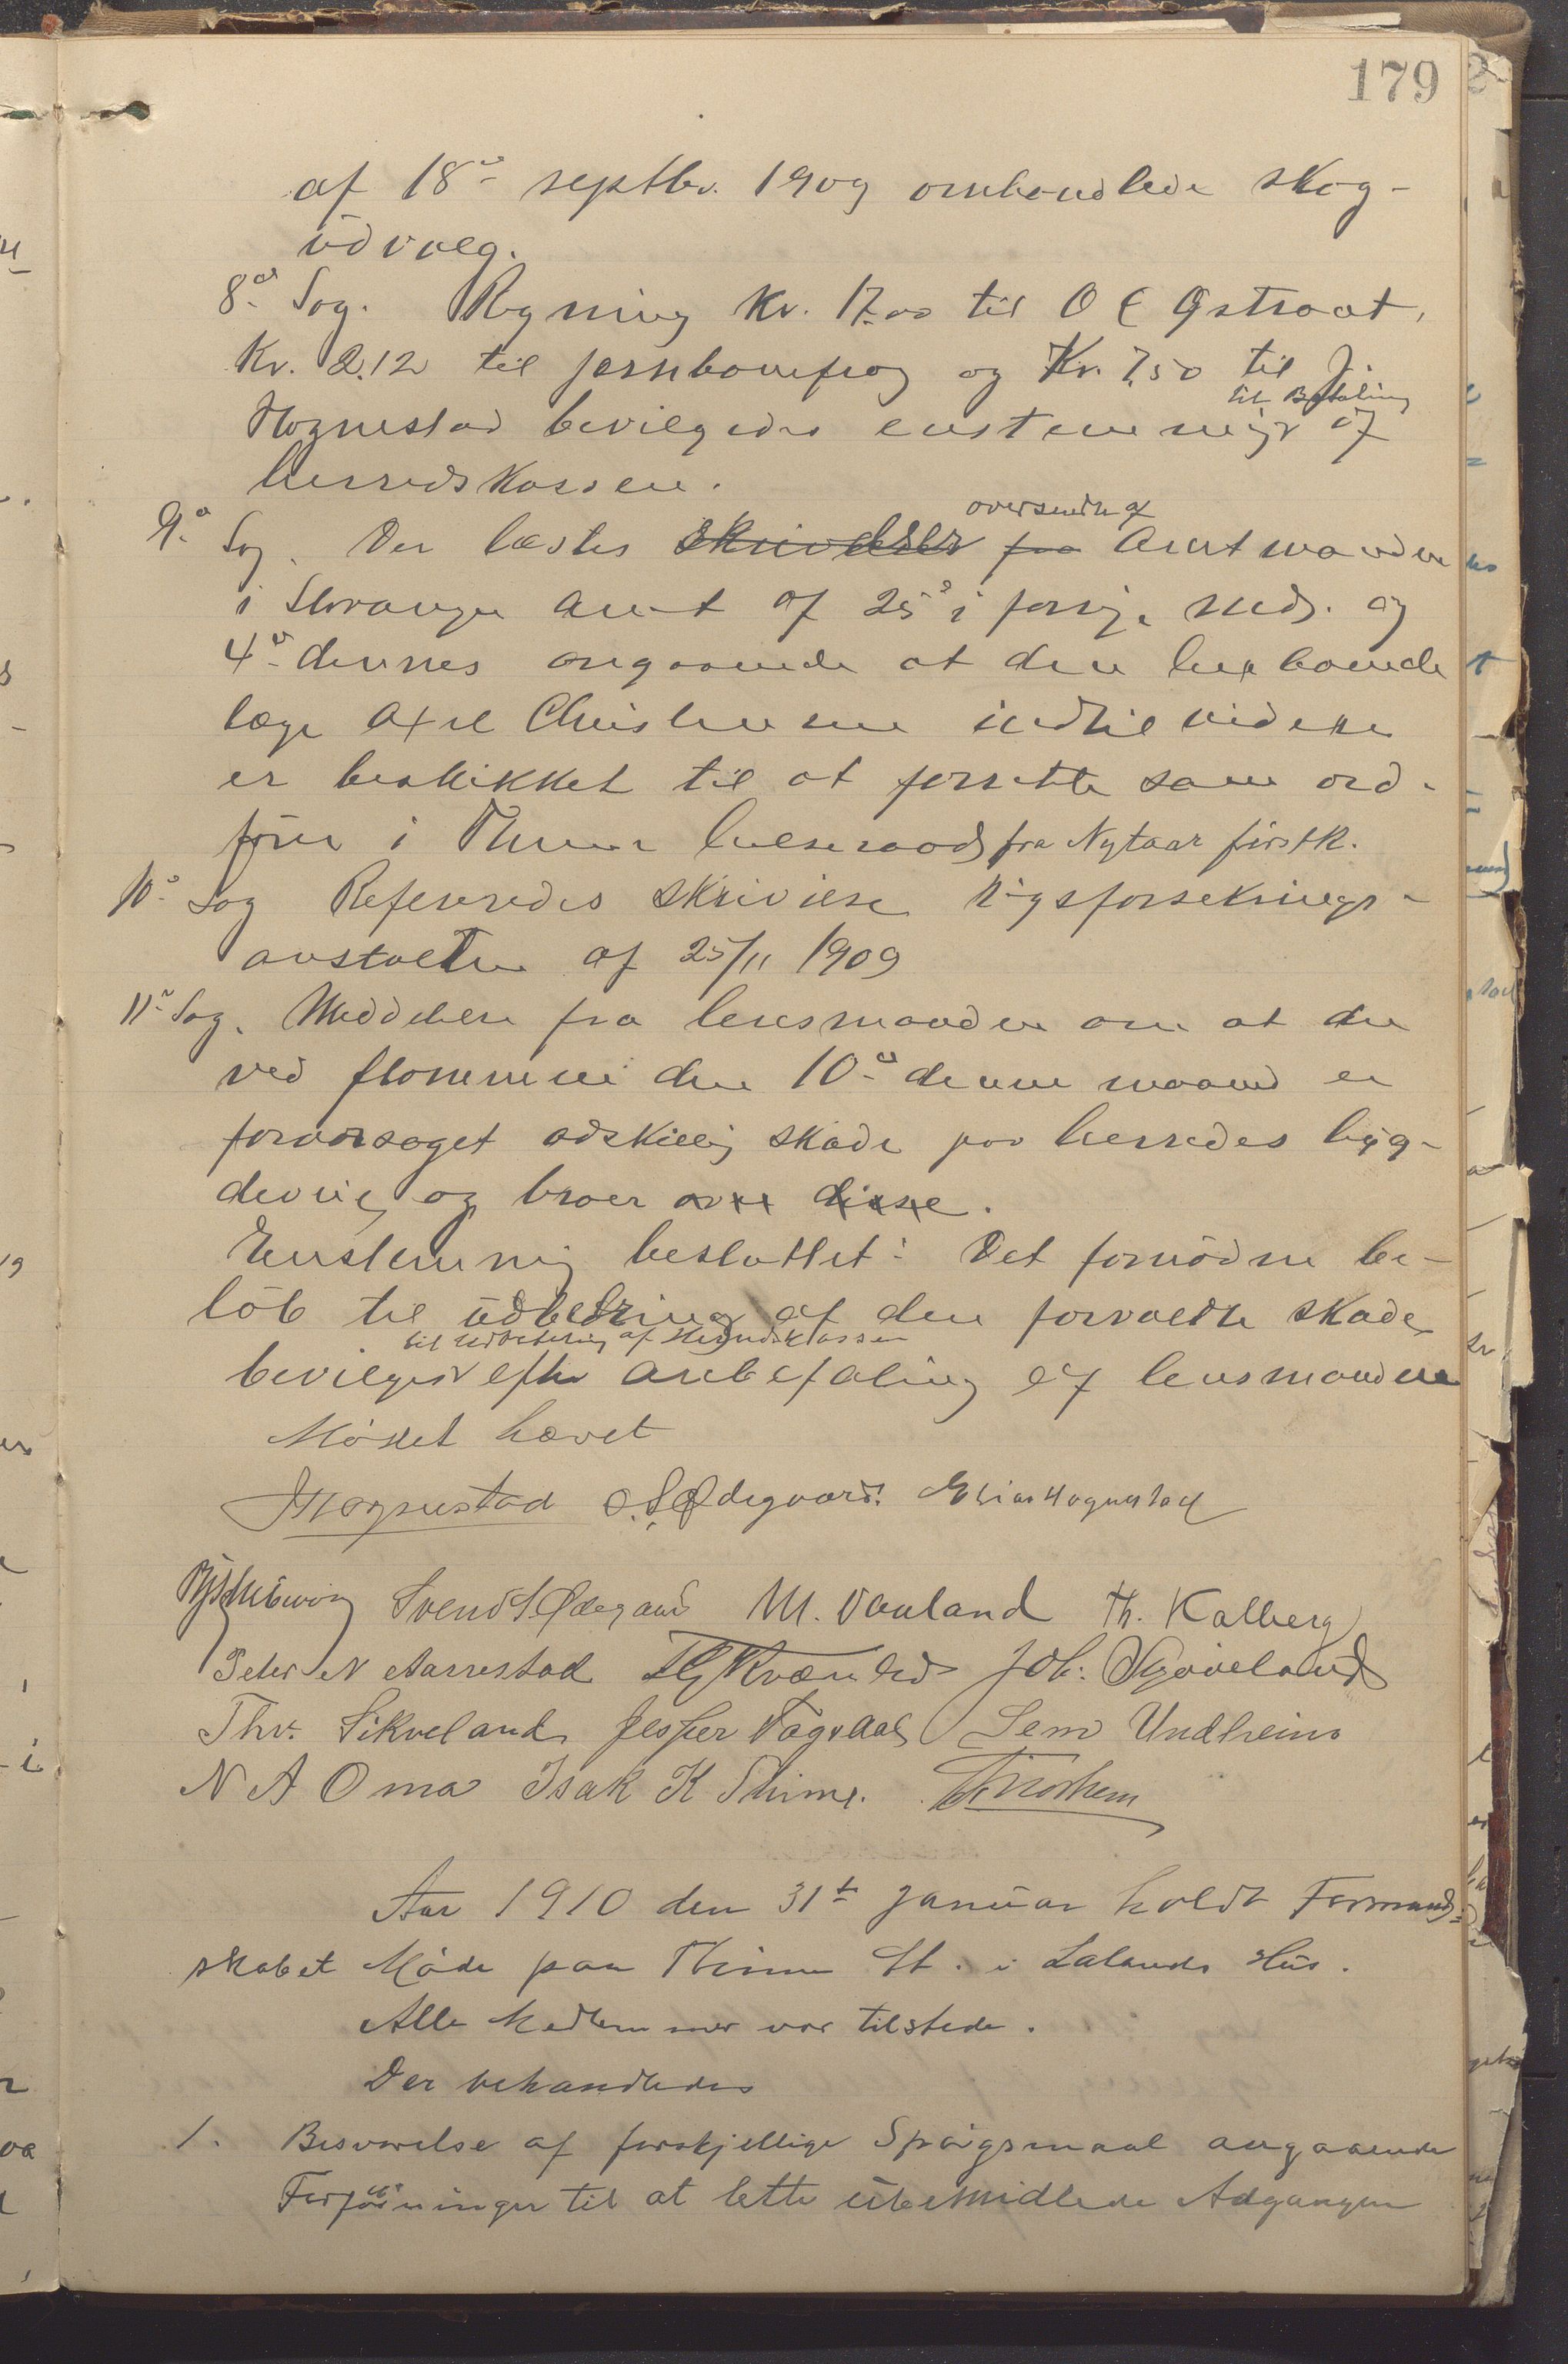 179
af 18de septbr. 1909 omhandlede skog-
udvalg.
8de Sag. Regning Kr. 17.00 til O E Gstraat,
Kr. 2.12 til Jernbanefrag og Kr. 7,50 til J.
til Betaling
Hognestad bevilgedes enstemmig af
herredskassen.
oversendte af
9de Sag. Der læstes skrivelser fra Amtmanden
i Stavanger amt af 25de i forrige mds. og
4de dennes angaaende at den herboende
læge Axel Christensen indtil videre
er beskikket til at forsette som ord-
fører i Thime helseraad fra Nytaar førstk.
10de Sag Refereredes skrivelse Rigsforsekrings-
anstalten af 25/11 1909
11te Sag. Meddelelse fra lensmanden om at der
ved flommene den 10de denne maaned er
foraarsaget adskillig skade paa herredes byg-
deveie og broer over disse.
Enstemmig besluttet: Det fornødne be-
løb til udbedring af den forvoldte skade
til Udbetaling af Herredskassen
bevilges efter anbefaling af lensmanden
Mødet hævet
J Hognestad O. S. Ødegaard. Elias Hognestad
Svend S Ødegaard M. Vauland Th. Kalberg
Peder N Aarrestad Joh. Skjæveland
Thv. Sikveland Jesper Fagvdal Sem Undheim
N A Oma Isak K Thime.
Aar 1910 den 31te Januar holdt Formand-
skabet Møde paa Thime St. i Lalands Hus.
Alle Medlemmer var tilstede.
Der behandledes
1. Besvarelse af forskjellige Spørgsmaal angaaende
Forføininger til at lette ubemidlede Adgangen